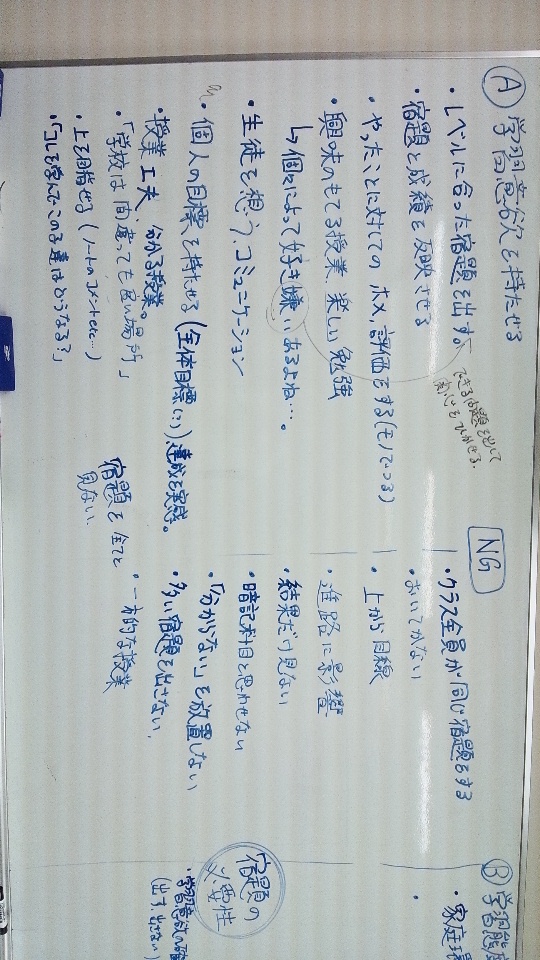 Ⓐ 学習意欲を持たせる
・レベルに合った宿題を出す。
できる問題を出して
関心をひかせる。
・宿題と成績を反映させる
・やったことに対しての ホメ、評価をする(モノでつる)
・興味のもてる授業、楽しい勉強
↳個々によって好き嫌いあるよね…。
・生徒を想う、コミュニケーション
・個人の目標を持たせる (全体目標に)達成を実感。
・授業工夫、分かる授業。
・「学校は間違っても良い場所」
・上を目指せる (ノートのコメントetc…)
・「コレを学んでこの子達はどうなる?」
NG
・クラス全員が同じ宿題をする
・おいてかない
・上から目線
・進路に影響
・結果だけ見ない
・暗記科目と思わせない
・「分からない」を放置しない
・多い宿題を出さない。
・一方的な授業
宿題を全てと
見ない
Ⓑ 学習態度
・家庭環
・
宿題の
必要性
・学習意欲の確
(出す、出さない)